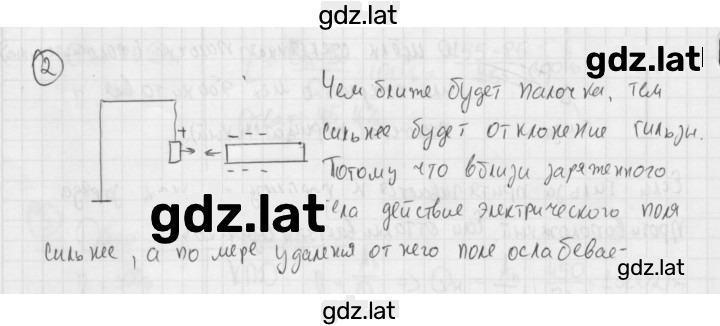 gdz.lat
gdz.lat
2
Чем ближе будет палочка, тем
сильнее будет отклонение гильзы.
Потому что вблизи заряженного
тела действие электрического поля
gdz.lat
сильнее, а по мере удаления от него поле ослабевае-
gdz.lat
gdz.lat
+
- - -
- - -